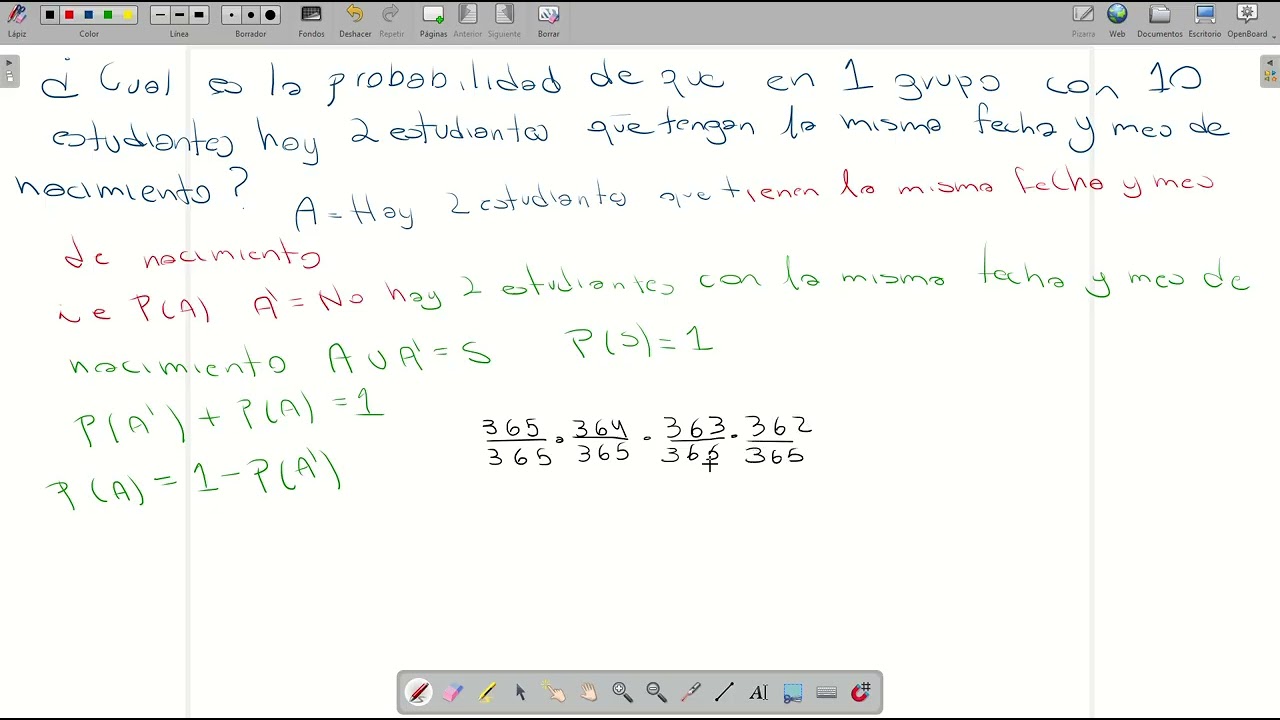 Lápiz Color Línea Borrador Fondos Deshacer Repetir Páginas Anterior Siguiente Borrar Pizarra Web Documentos Escritorio OpenBoard
¿Cual es la probabilidad de que en 1 grupo con 10
estudiantes hay 2 estudiantes que tengan la misma fecha y mes de
nacimiento?
A = Hay 2 estudiantes que tienen la misma fecha y mes
de nacimiento
i.e P(A) A' = No hay 2 estudiantes con la misma fecha y mes de
nacimiento A ∪ A' = S P(S) = 1
P(A') + P(A) = 1
365/365 · 364/365 · 363/365 · 362/365
P(A) = 1 - P(A')